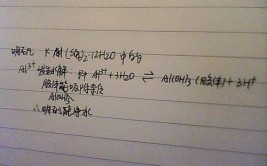 明矾 KAl(SO₄)₂·12H₂O 中的
Al³⁺ 发生水解：即 Al³⁺ + 3H₂O ⇌ Al(OH)₃(胶体) + 3H⁺
胶体能吸附杂质
Al(OH)₃
∴明矾能净水